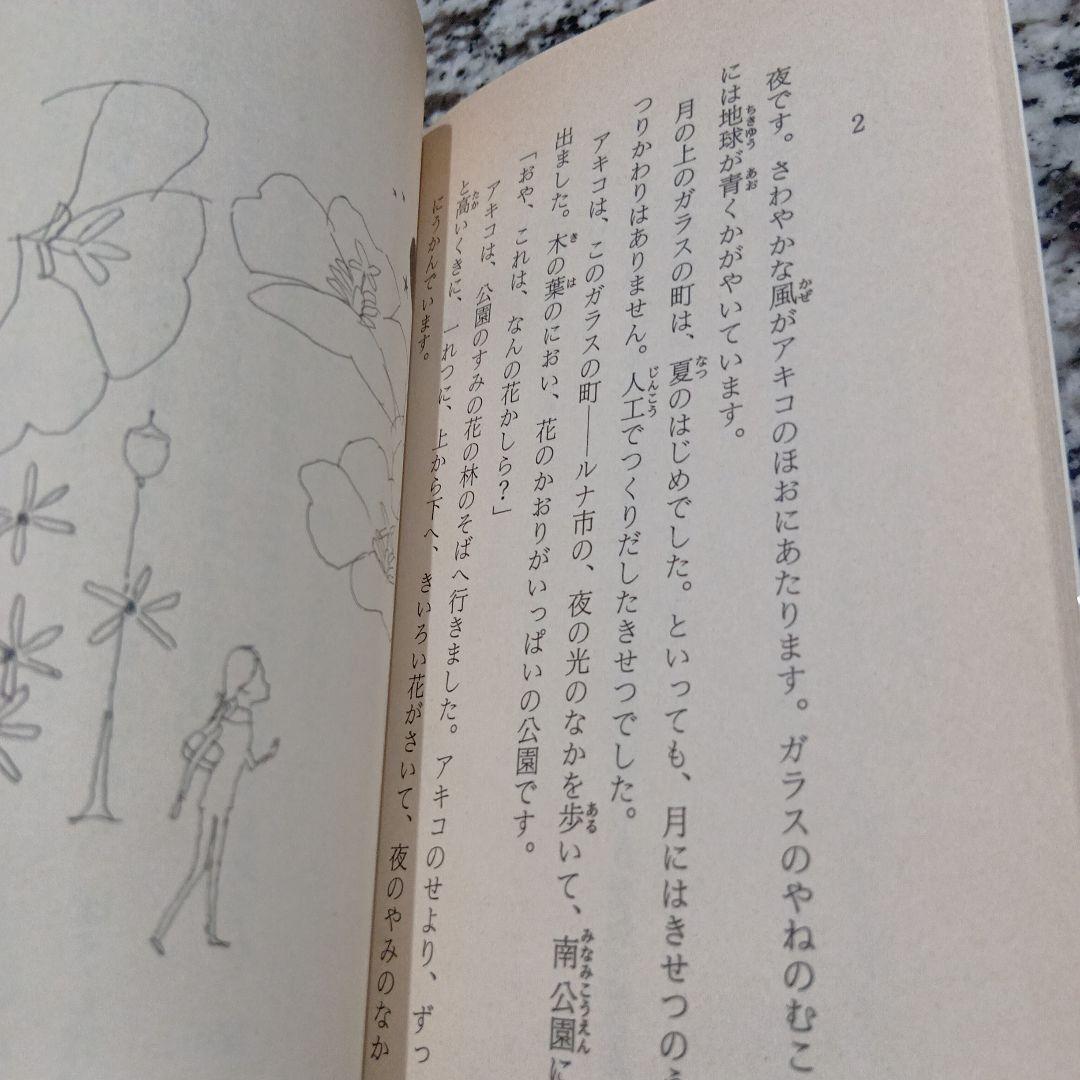 2
夜です。さわやかな風がアキコのほおにあたります。ガラスのやねのむこ
には地球が青くかがやいています。
月の上のガラスの町は、夏のはじめでした。といっても、月にはきせつのう
つりかわりはありません。人工でつくりだしたきせつでした。
アキコは、このガラスの町――ルナ市の、夜の光のなかを歩いて、南公園に
出ました。木の葉のにおい、花のかおりがいっぱいの公園です。
「おや、これは、なんの花かしら?」
アキコは、公園のすみの花の林のそばへ行きました。アキコのせより、ずっ
と高いくきに、一れつに、上から下へ、きいろい花がさいて、夜のやみのなか
にうかんでいます。